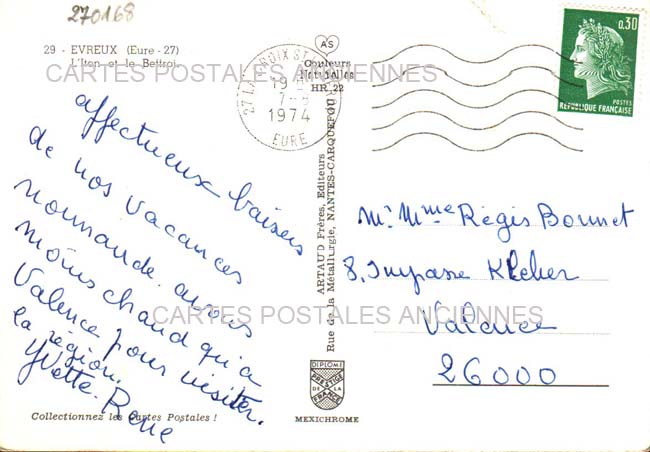 270168
29 - EVREUX (Eure - 27)
L'Iton et le Beffroi
CARTES POSTALES ANCIENNES
affectueux baisers
de nos vacances
normande. avons
moins chaud qu'a
Valence pour visiter
la région.
Yvette. Rene
Collectionnez les Cartes Postales !
AS
Couleurs
Naturelles
HR 22
27 LA CROIX ST
19 H
7 - 8
1974
EURE
0,30
POSTES
REPUBLIQUE FRANÇAISE
ARTAUD Frères, Editeurs
Rue de la Métallurgie, NANTES-CARQUEFOU
Mr Mme Régis Bonnet
8, Impasse Kleber
CARTES POSTALES ANCIENNES
Valence
26000
DIPLOME
PRESTIGE
DE LA
FRANCE
MEXICHROME